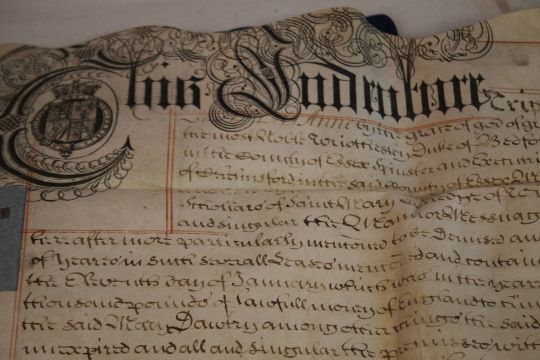 This Indenture Trip
Anne by the grace of god of gr
the most Noble Wriothesley Duke of Bedfor
in the County of Essex Spinster and Executri
in the said County of Essex
Schollars of Saint Mary of
and singular the Mannor Messuag
hereafter more particularly mentioned to be Demised an
of Yeares in such severall Leases menc'oned and contain
the Eleventh day of January which was in the yeare
thousand pounds of lawfull money of England to
the said Mary Dawtry among other things the said
unexpired and all and singular the premisses with